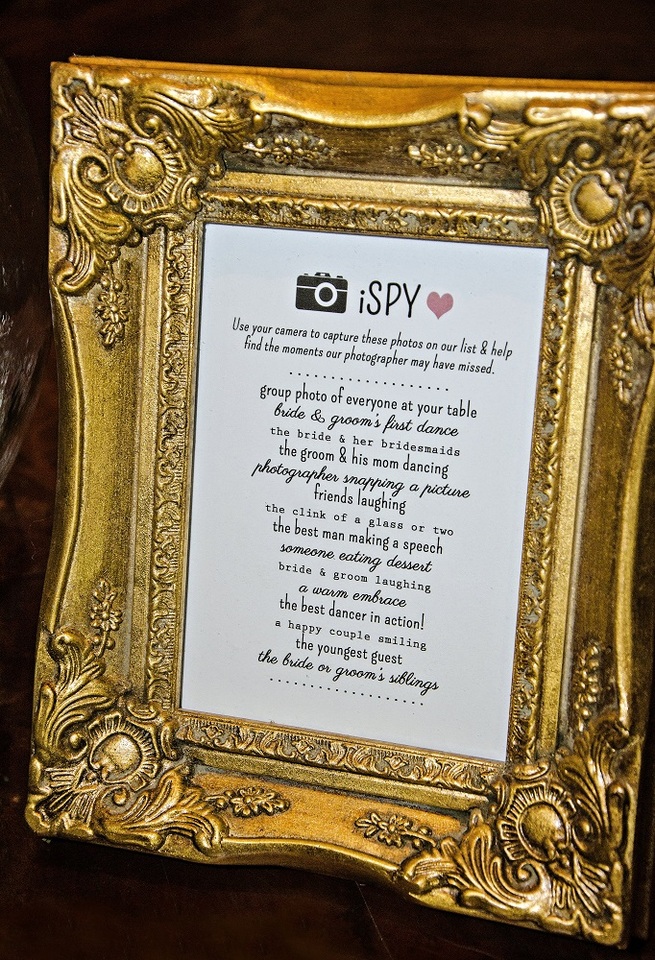 iSPY
Use your camera to capture these photos on our list & help
find the moments our photographer may have missed.
group photo of everyone at your table
bride & groom's first dance
the bride & her bridesmaids
the groom & his mom dancing
photographer snapping a picture
friends laughing
the clink of a glass or two
the best man making a speech
someone eating dessert
bride & groom laughing
a warm embrace
the best dancer in action!
a happy couple smiling
the youngest guest
the bride or groom's siblings